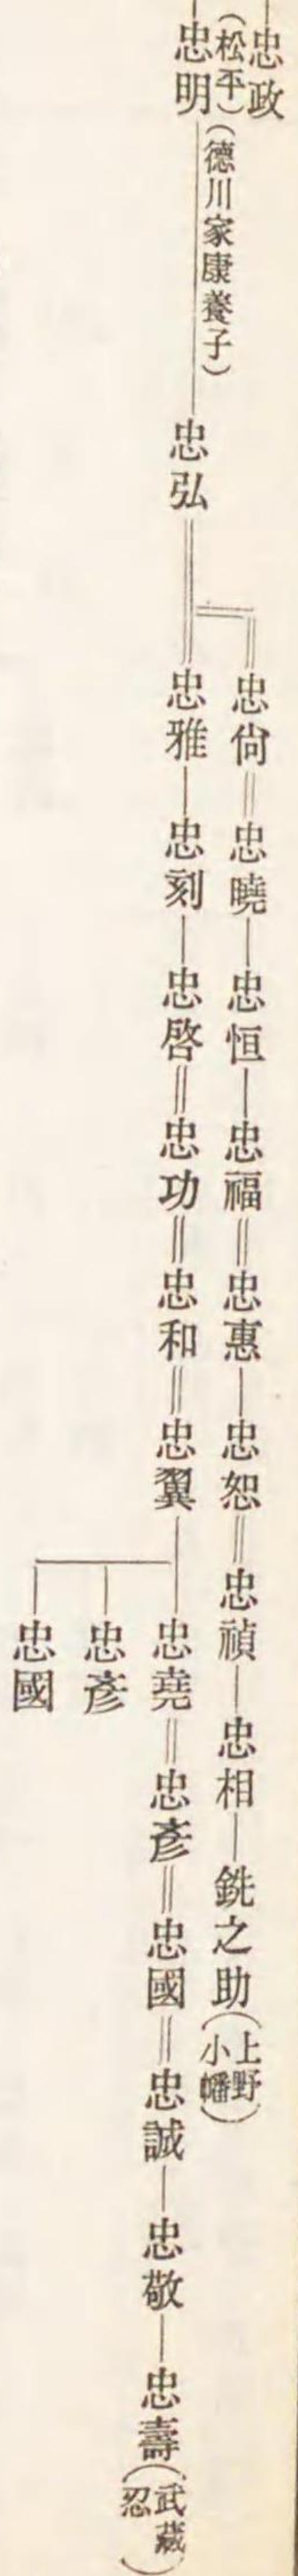 忠政
(松平)
忠明(德川家康養子)
忠弘
忠尙
忠曉
忠恒
忠福
忠惠
忠恕
忠禎
忠相
銑之助(上野小幡)
忠雅
忠刻
忠啓
忠功
忠和
忠翼
忠堯
忠彥
忠國
忠誠
忠敬
忠壽(武藏忍)
忠彥
忠國